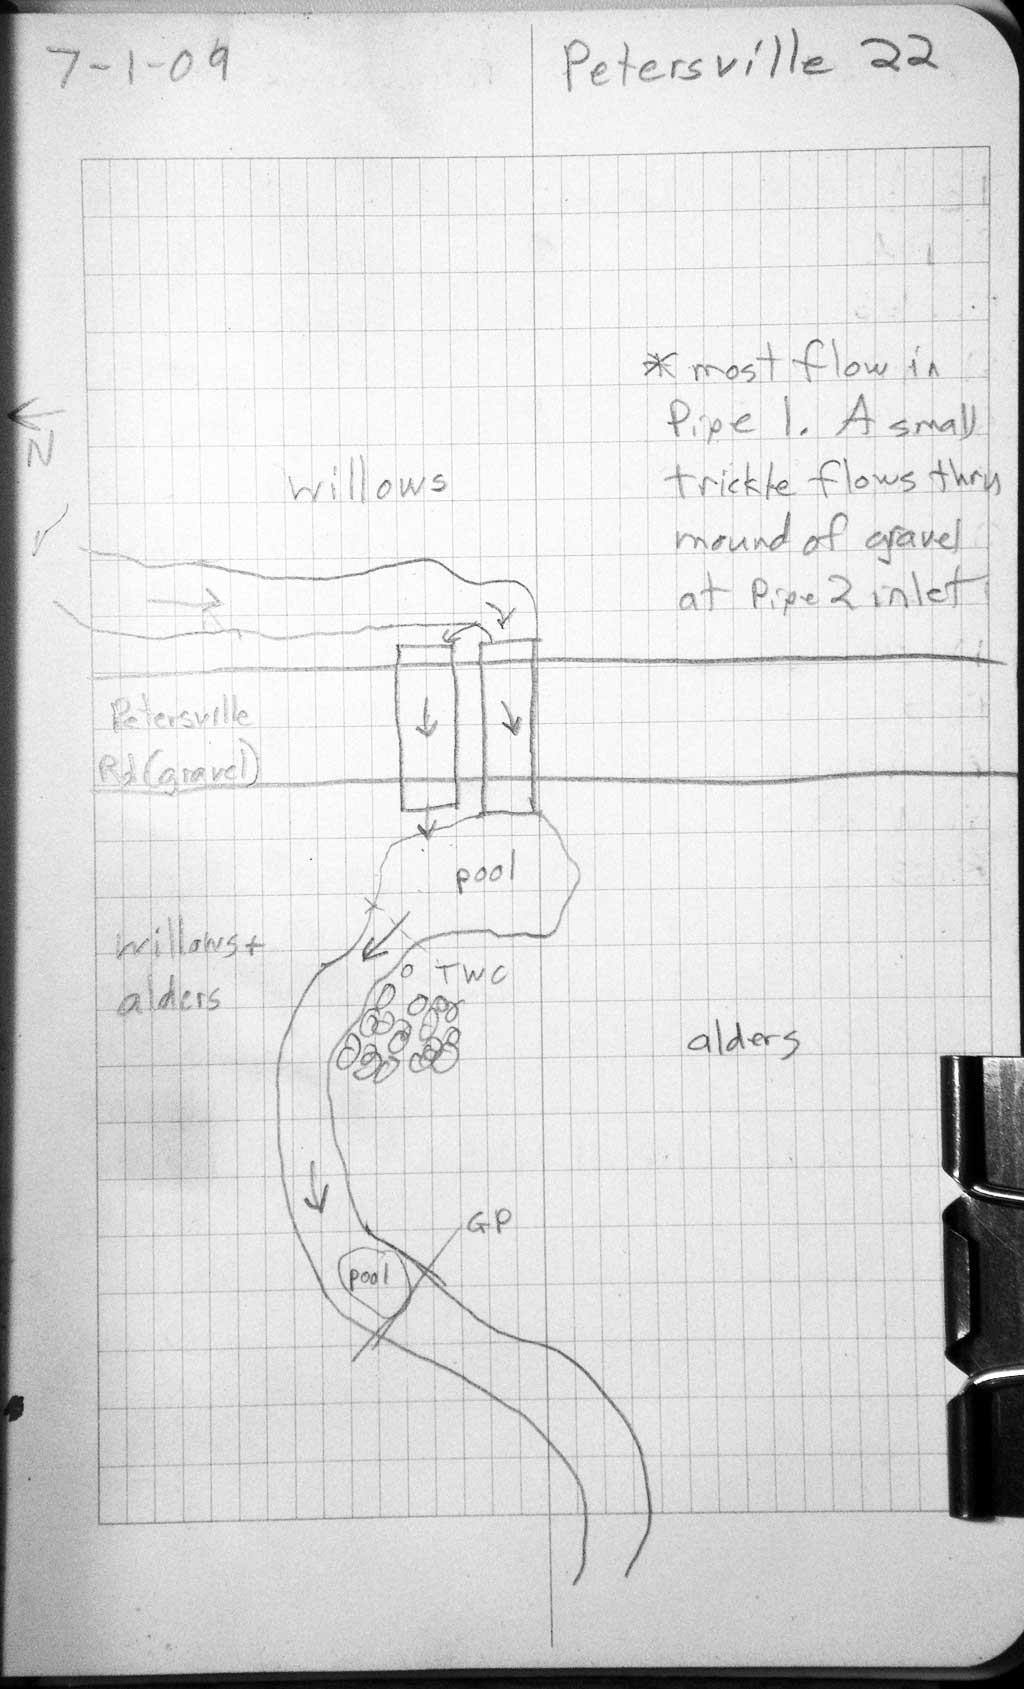 7-1-09
Petersville 22
* most flow in
Pipe 1. A small
trickle flows thru
mound of gravel
at Pipe 2 inlet
N
willows
Petersville
Rd (gravel)
pool
willows +
alders
TWC
alders
GP
pool